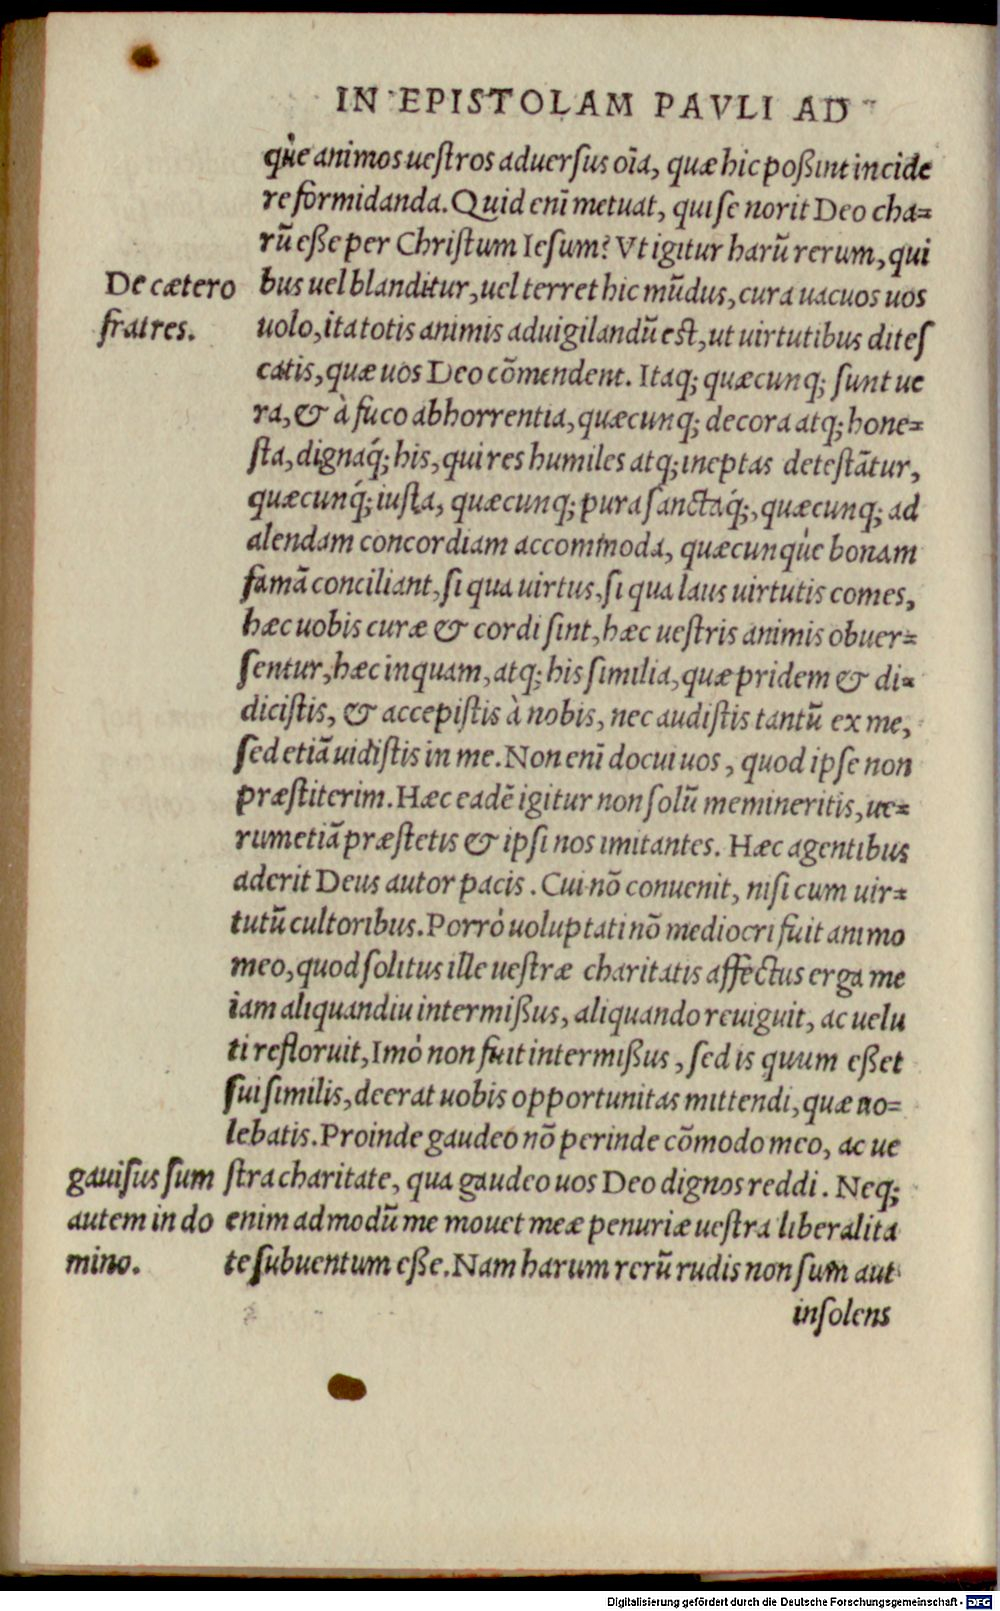 IN EPISTOLAM PAVLI AD
q́ue animos ueſtros aduerſus oı̃a, quæ hic poßint incide
re formidanda. Quid enĩ metuat, qui ſe norit Deo cha-
rũ eße per Chriſtum Ieſum? Vt igitur harũ rerum, qui
De cætero
fratres.
bus uel blanditur, uel terret hic mũdus, cura uacuos uos
uolo, ita totis animis aduigilandũ eſt, ut uirtutibus diteſ
catis, quæ uos Deo cõmendent. Itaq; quæcunq; ſunt ue
ra, & à fuco abhorrentia, quæcunq; decora atq; hone-
ſta, dignaq́; his, qui res humiles atq; ineptas deteſtãtur,
quæcunq́; iuſta, quæcunq; pura ſanctaq́;, quæcunq; ad
alendam concordiam accommoda, quæcunq̀ue bonam
famã conciliant, ſi qua uirtus, ſi qua laus uirtutis comes,
hæc uobis curæ & cordi ſint, hæc ueſtris animis obuer-
ſentur, hæc inquam, atq; his ſimilia, quæ pridem & di-
diciſtis, & accepiſtis à nobis, nec audiſtis tantũ ex me,
ſed etiã uidiſtis in me. Non enĩ docui uos, quod ipſe non
præſtiterim. Hæc eadẽ igitur non ſolũ memineritis, ue-
rumetiã præſtetis & ipſi nos imitantes. Hæc agentibus
aderit Deus autor pacis. Cui nõ conuenit, niſi cum uir-
tutũ cultoribus. Porrò uoluptati nõ mediocri fuit animo
meo, quod ſolitus ille ueſtræ charitatis affectus erga me
iam aliquandiu intermißus, aliquando reuiguit, ac uelu
ti refloruit, Imò non fuit intermißus, ſed is quum eßet
ſui ſimilis, deerat uobis opportunitas mittendi, quæ uo-
lebatis. Proinde gaudeo nõ perinde cõmodo meo, ac ue
gauiſus ſum
autem in do
mino.
ſtra charitate, qua gaudeo uos Deo dignos reddi. Neq;
enim admodũ me mouet meæ penuriæ ueſtra liberalita
te ſubuentum eße. Nam harum rerũ rudis non ſum aut
inſolens
Digitalisierung gefördert durch die Deutsche Forschungsgemeinschaft - DFG